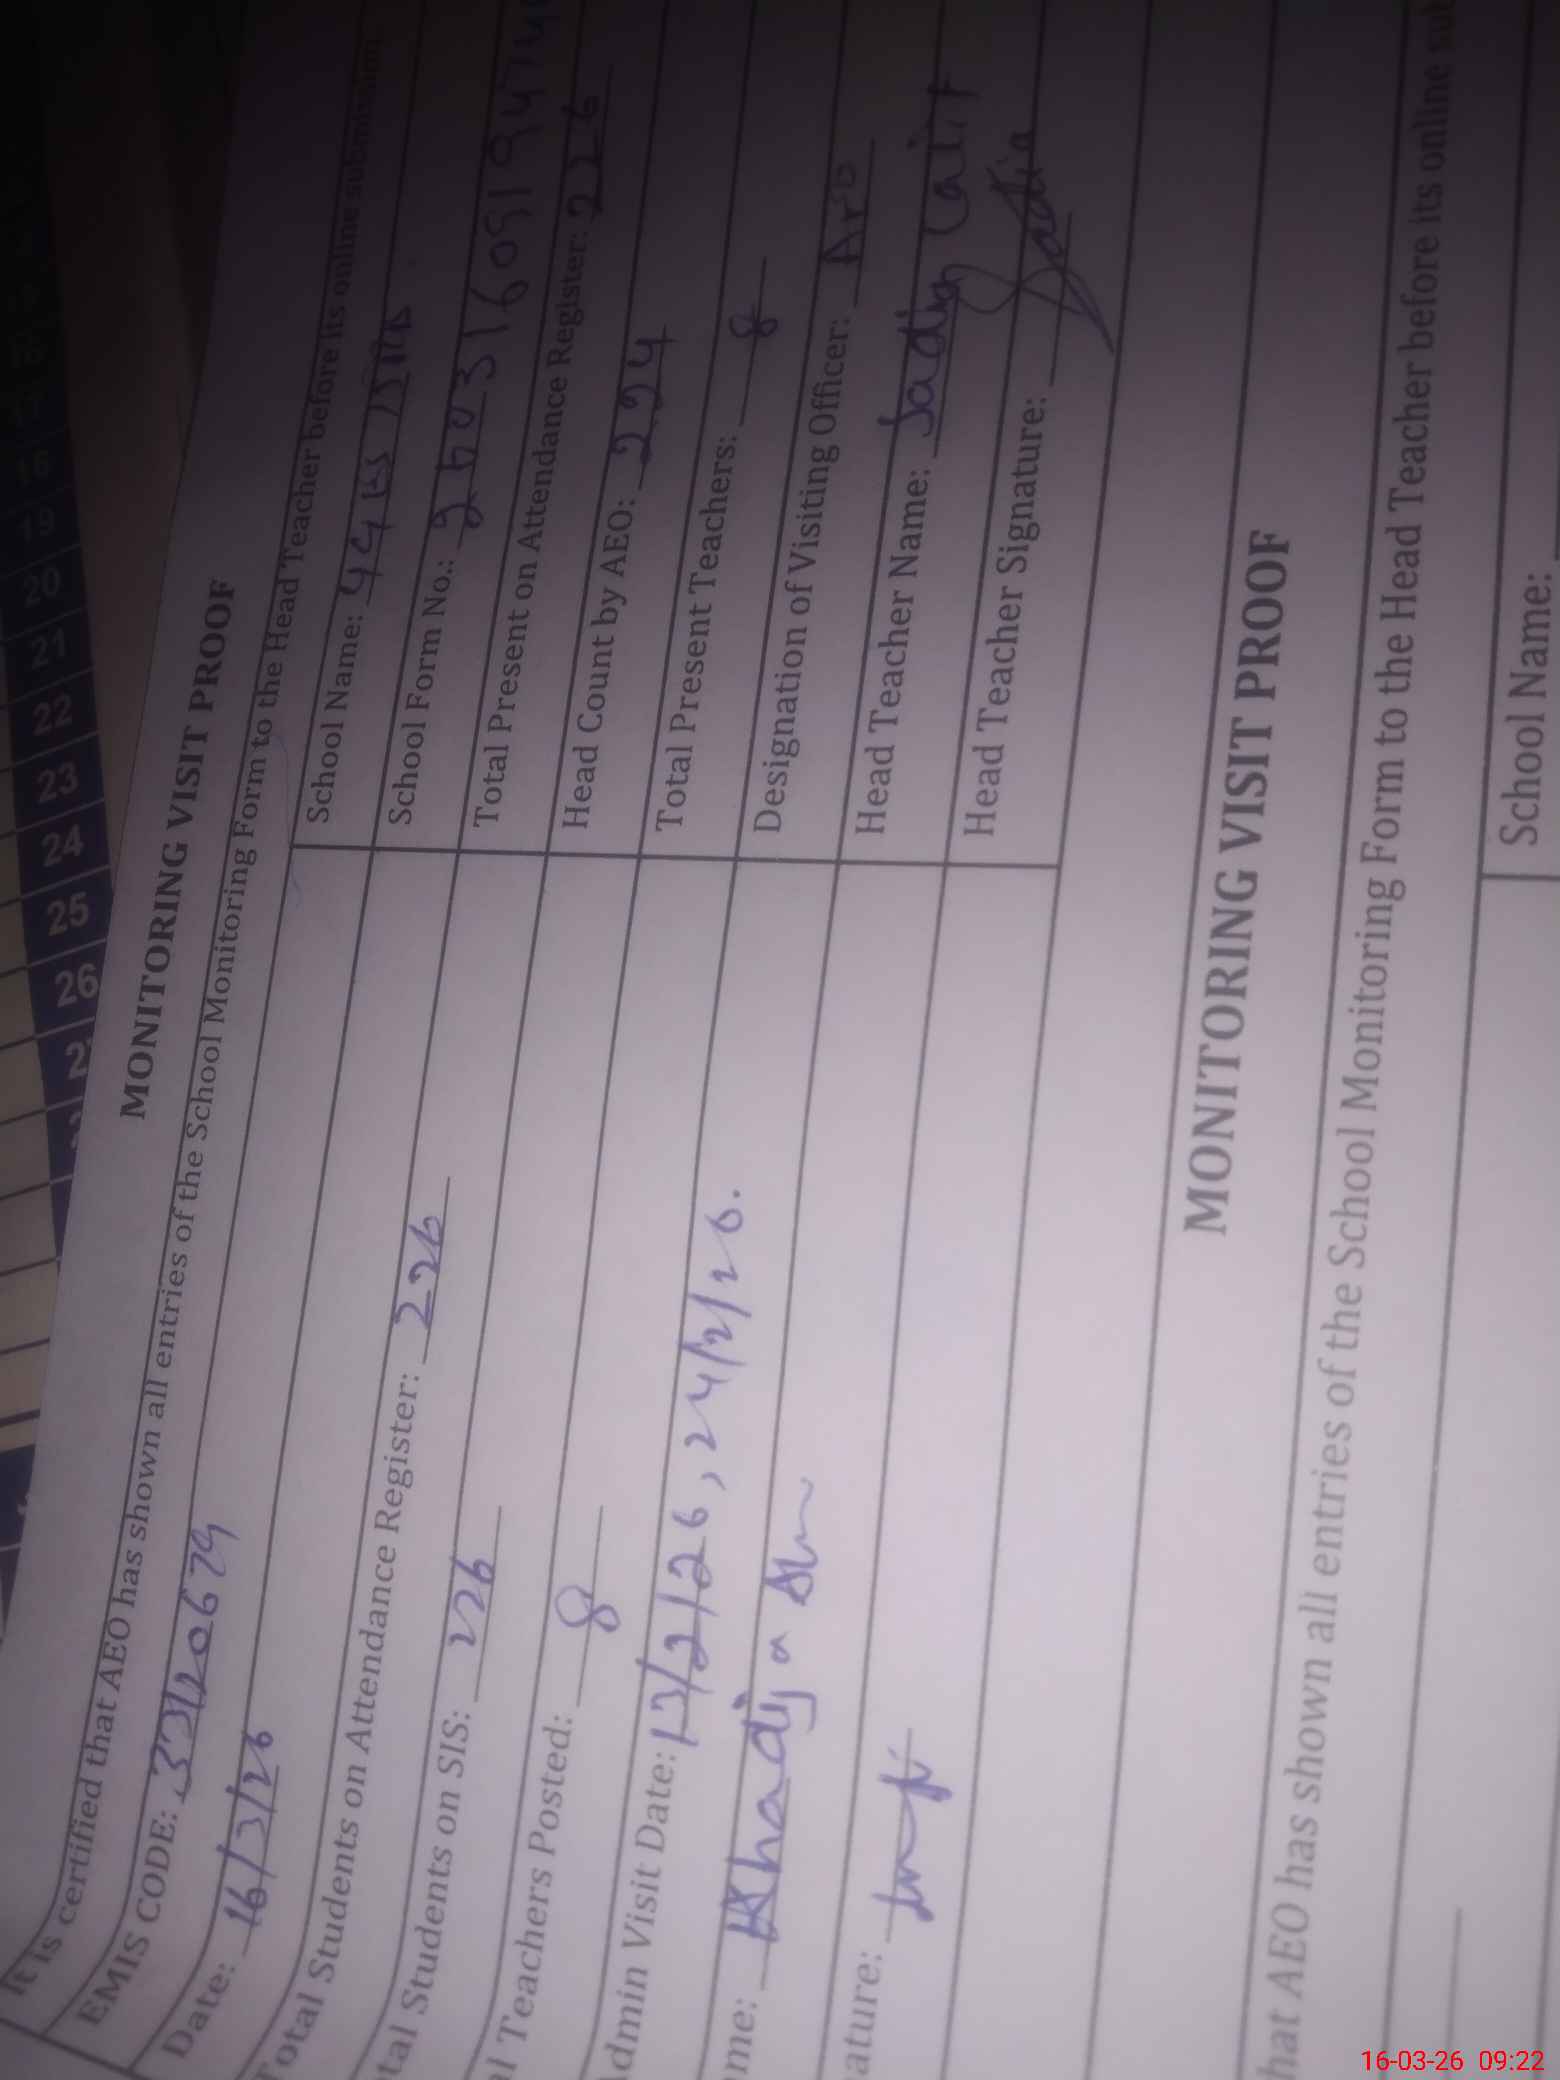 MONITORING VISIT PROOF
It is certified that AEO has shown all entries of the School Monitoring Form to the Head Teacher before its online submission
EMIS CODE: School Name:
Date: 16/3/26 School Form No.:
Total Students on Attendance Register: 226 Total Present on Attendance Register: 226
tal Students on SIS: 226 Head Count by AEO: 224
l Teachers Posted: 8 Total Present Teachers: 8
dmin Visit Date: 13/2/26, 24/2/26. Designation of Visiting Officer:
me: Khadija Head Teacher Name: Sadia
ature: Head Teacher Signature: Sadia
MONITORING VISIT PROOF
hat AEO has shown all entries of the School Monitoring Form to the Head Teacher before its online sub
School Name:
16
19
20
21
22
23
24
25
26
16-03-26 09:22